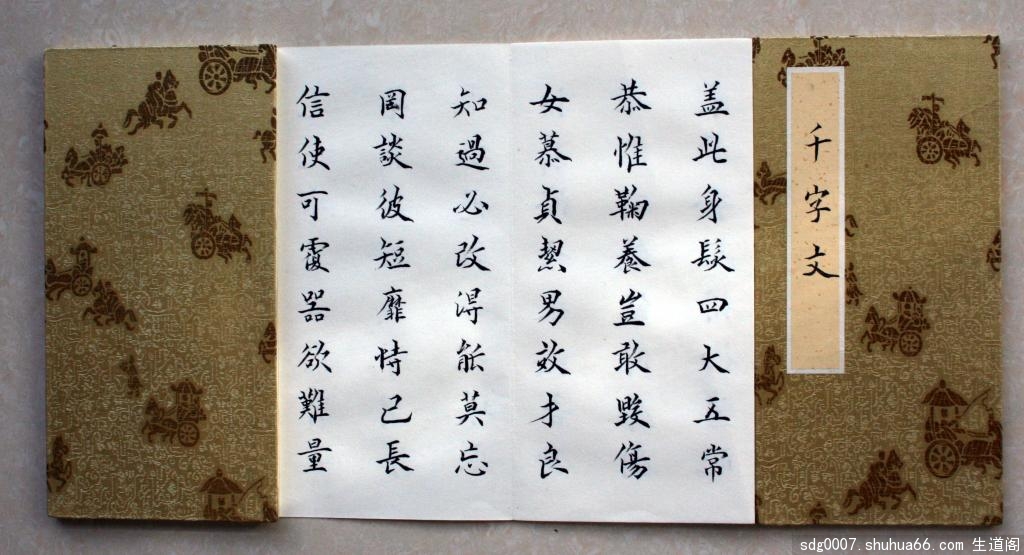 千字文
盖此身髮四大五常
恭惟鞠養豈敢毀傷
女慕貞絜男效才良
知過必改得能莫忘
罔談彼短靡恃己長
信使可覆器欲難量
sdg0007.shuhua66.com 生道阁